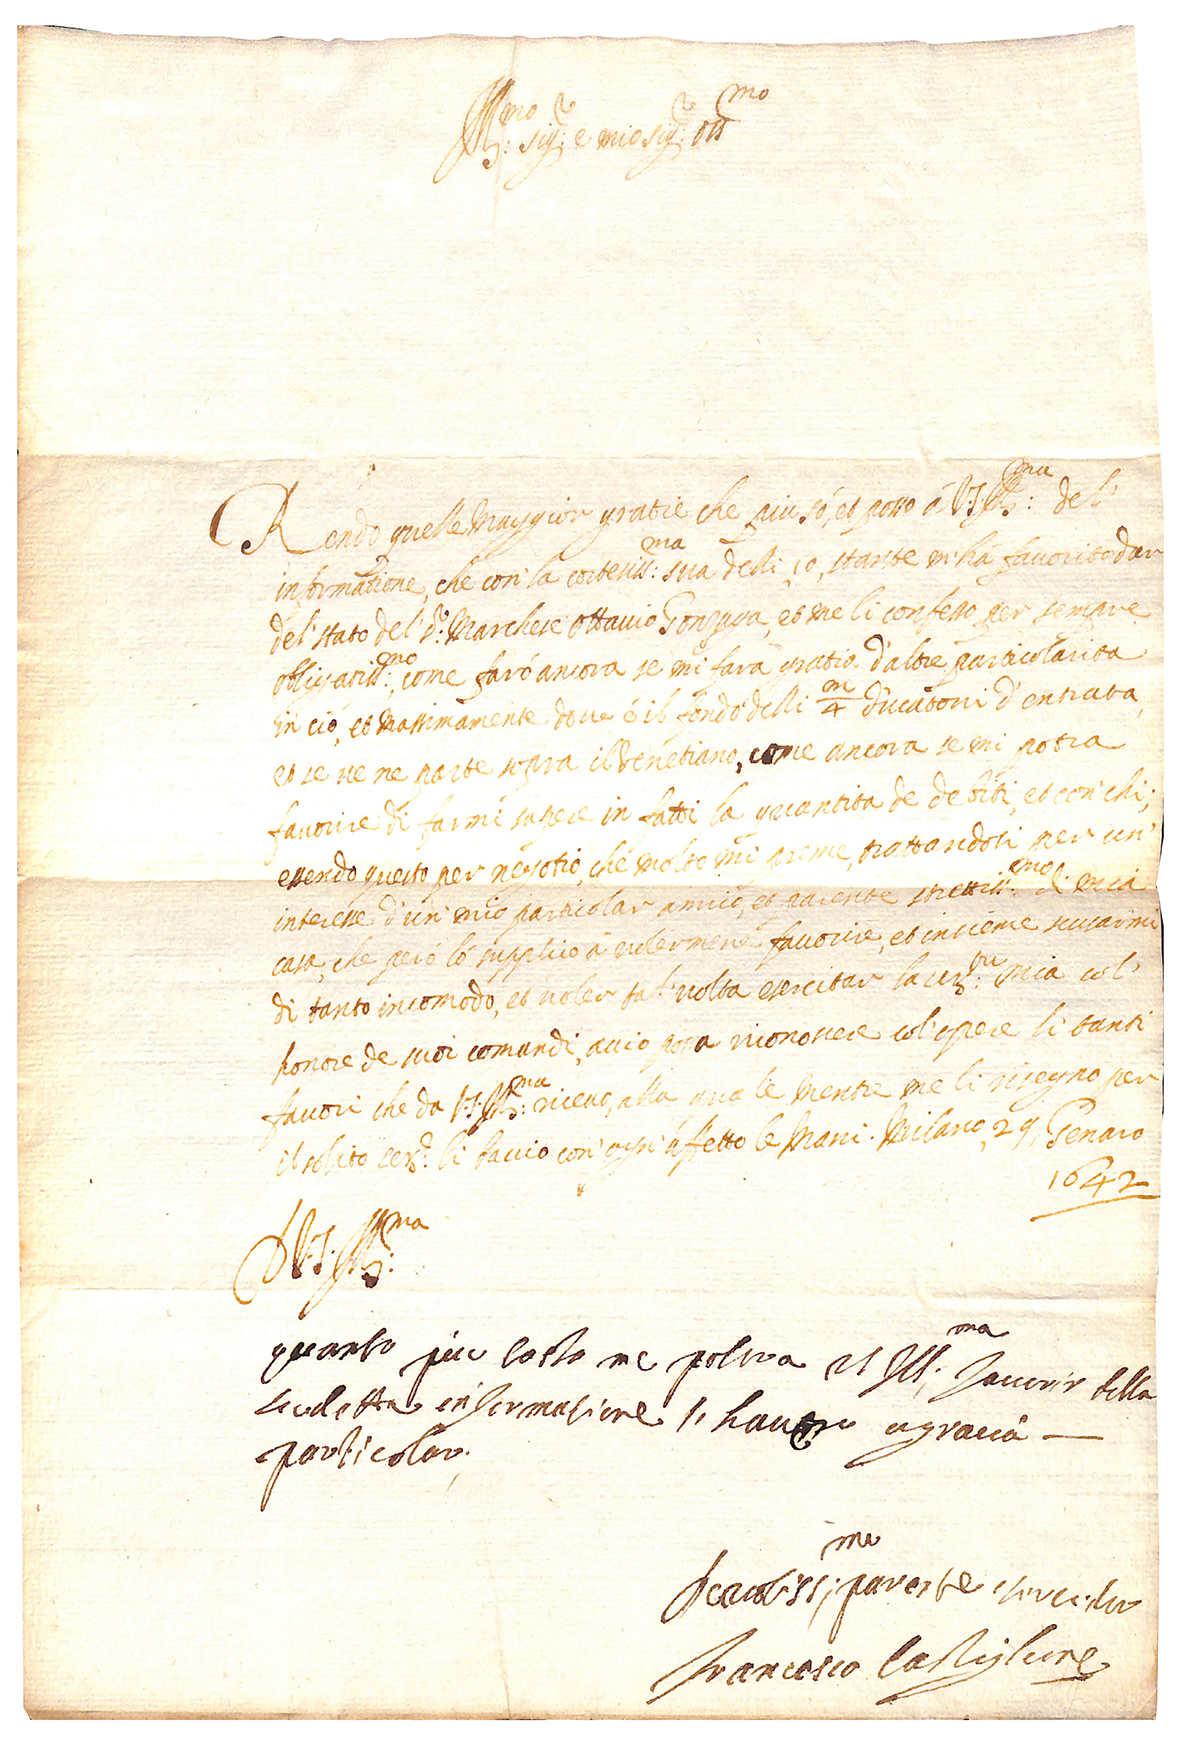 Ill.mo sig.r e mio sig.r oss.mo
Rendo quelle maggior gratie che piu só, et posso á V.S. Ill.ma del'
informatione, che con la cortesiss.ma sua delli 10, stante m'ha favorito dar
del' stato del' s.r Marchese Ottavio Gonzaga, et me li confesso per sempre
obligatiss.mo, come faró ancora se mi fara gratia d'altre particolarita
in ció, et massimamente dove é il fondo delli m/4 ducatoni d'entrata,
et se ve ne parte sopra il Venetiano, come ancora se mi potra
favorire di farmi sapere in fatti la quantita de debiti, et con' chi;
essendo questo per negotio, che molto mi preme, trattandosi per un'
interesse d'un' mio particolar amico, et parente strettiss.mo di mia
casa, che peró lo supplico á volermene favorire, et insieme scusarmi
di tanto incomodo, et voler tal' volta esercitar la ser.tu mia col'
honore de suoi comandi, accio possa riconoscere col' opere li tanti
favori che da V.S. Ill.ma ricevo, alla quale mentre me li rasegno per
il solito ser.re li baccio con' ogn' affetto le mani. Milano 29 Genaro
1642
D V.S. Ill.ma
quanto piu tosto me potra VS Ill.ma favorir della
sudetta informatione li havero a gracia
particolar.
Devotiss.mo parente servidor
Francesco Castiglione